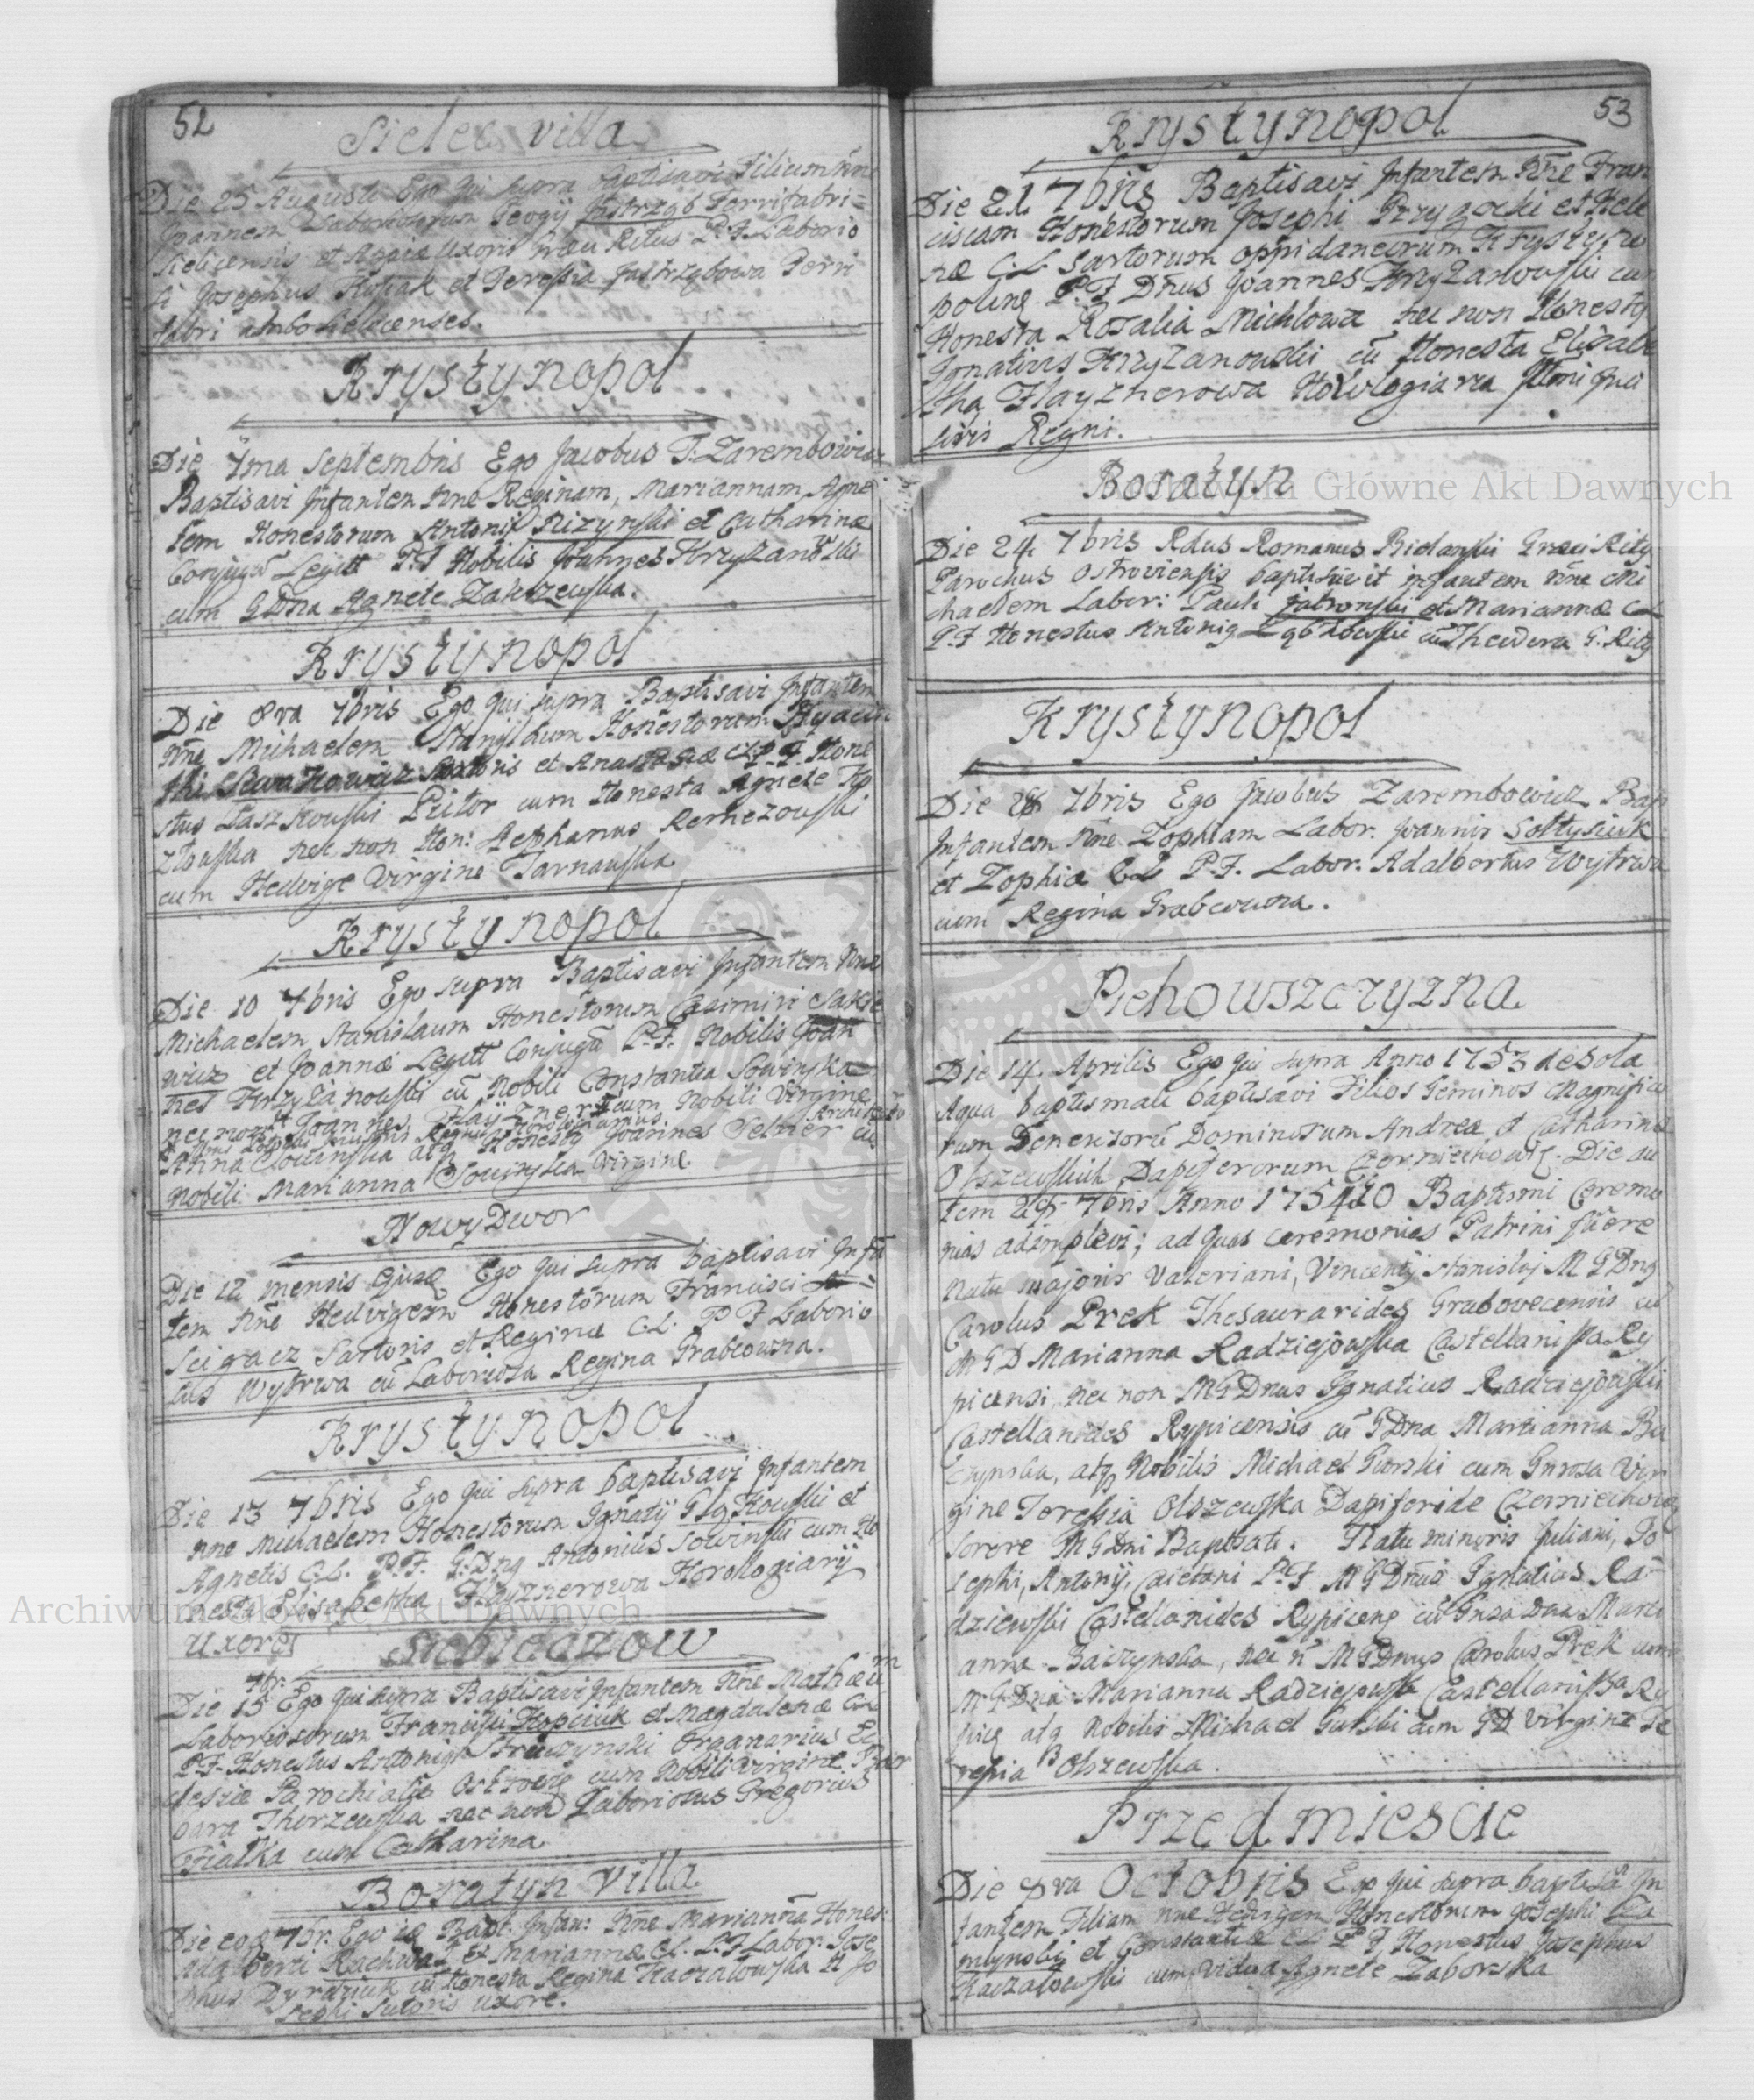 52
Sielec villa
Die 25 Augusti Ego qui supra baptisavi Filium nne
Joannem Laboriosorum Georgij Jastrząb Ferrifabri=
Sielicensis et Uxoris Graeci Ritus P.F. Laborio
si Josephus et Teressia Jastrząbowa Ferri
fabri ambo Sielicenses.
Krystynopol
Die 7ma Septembris Ego Jacobus T. Zarembowicz
Baptisavi Infantem nne Reginam, Mariannam, Agne
tem Honestorum Antonij Nizynski et Catharinae
Conjugū Legitt P.F Nobilis Joannes Krzyżanowski
cum GDna Agnete Zakrzewska.
Krystynopol
Die 8va 7bris Ego qui supra Baptisavi Infantem
nne Michaelem Stanislaum Honestorum Hyacin
thi Sartoris et Anastasiae CL P.F. Hone
stus Staszkowski Pictor cum Honesta Agnete Ko
złowska nec non Hon: Stephanus Remezowski
cum Hedvige Virgine Tarnawska
Krystynopol
Die 10 7bris Ego supra Baptisavi Infantem nne
Michaelem Stanislaum Honestorum Casimiri Sakie
wicz et Joannae Legitt Conjugū P.F. Nobilis Joan
nes Krzyżanowski cū Nobili Constantia Sowinska
nec non Joannes Flayzner cum Nobili Virgine
Anna Sowinska atq Honesty Joannes Selner cū
Nobili Marianna Sowinska Virgine
Nowy Dwor
Die 12 mensis ejusd Ego qui supra baptisavi Infā
tem nne Hedvigem Honestorum Francisci
Scigacz Sartoris et Reginae C.L. P F Laborio
sus Wytrwa cū Laboriosa Regina Grabcowna.
Krystynopol
Die 13 7bris Ego qui supra baptisavi Infantem
nne Michaelem Honestorum Ignatij et
Agnetis C.L. P.F. G.Dnq Antonius Sowinski cum Ho
nesta Elisabetha Flayznerowa Horologiarij
Uxore
Siebieczow
7br.
Die 15 Ego qui supra Baptisavi Infantem nne Mathaeum
Laboriosorum Francisci Kopczuk et Magdalenae CL
P.F. Honestus Antonius Struczynski Organarius Ec
clesiae Parochialis Ostrovie cum Nobili Virgine Bar
bara Thorzewska nec non Laboriosus Gregorius
Fiałka cum Catharina
Boratyn villa
Die eod 7br. Ego id Bapt. Infan: nne Mariannā Hones:
Adalberti Rachwał et Mariannae CL. P.F Labor. Jose
phus Dyrdziuk cū Honesta Regina Kaczałowska Jo
sephi Sutoris uxore.
53
Krystynopol
Die 21 7bris Baptisavi Infantem nne Fran
ciscam Honestorum Josephi Przygocki et Hele
nae C.L Sartorum oppidaneorum Krystyno
poline P.F Dnus Joannes Krzyżanowski cum
Honesta Rosalia Michlowa nec non Honesty
Ignatius Krzyżanowski cū Honesta Elisabe
tha Flayznerowa Horologiarza
Regni.
Boratyn
Die 24 7bris Rdus Romanus Bielawski Graeci Ritq
Parochus Ostroviensis baptisavit infantem nne Mi
chaelem Labor: Pauli Jabronski et Mariannae CL
P.F Honestus Antoniq cū Theodora G. Ritq
Krystynopol
Die 28 7bris Ego Jacobus Zarembowicz Bap
Infantem nne Zophiam Labor. Joannis Sołtysiuk
et Zophiae CL P.F. Labor. Adalbertus Wytrwa
cum Regina Grabcowna.
Piehowszczyzna
Die 14 Aprilis Ego qui supra Anno 1753 de sola
Aqua baptismali baptisavi Filios Geminos Magnifico
rum Generosorū Dominorum Andreae et Catharinae
Olszewskich Dapiferorum Czerniechowie. Die au
tem 7bris Anno 1754to Baptismi Ceremo
nias adimplevi; ad quas ceremonias Patrini fuere
Natu majoris Valeriani, Vincentij Stanislaj M G Dnq
Carolus Prek Thesaurarides Grabovecensis cū
M G D Marianna Radziejowska Castellanissa Ry
picensi, nec non MGDnus Ignatius Radziejowski
Castellanides Rypicensis cū GDna Marianna Ba
czynska, atq Nobilis Michael Gurski cum Gnrosa Vir
gine Teressia Olszewska Dapiferide Czerniechovie
Sorore M GDni Baptisati. Natu minoris Juliani, Jo
sephi, Antonij, Caietani P.F MGDnus Ignatius Ra
dziewski Castellanides Rypicene cū Gnsa Dna Mari
anna Baczynska, nec n MGDnus Carolus Prek cum
M GDna Marianna Radziejowska Castellanissa Ry
pice atq Nobilis Michael Gurski cum GD Virgine Te
resia Olszewska.
Przedmiescie
Die 1va Octobris Ego qui supra baptisa In
fantem Filiam nne Hedvigem Honestorum Josephi
et Constantiae CL P F Honestus Josephus
Kaczałowski cum Vidua Agnete Zaborska
Archiwum Główne Akt Dawnych
Archiwum Główne Akt Dawnych